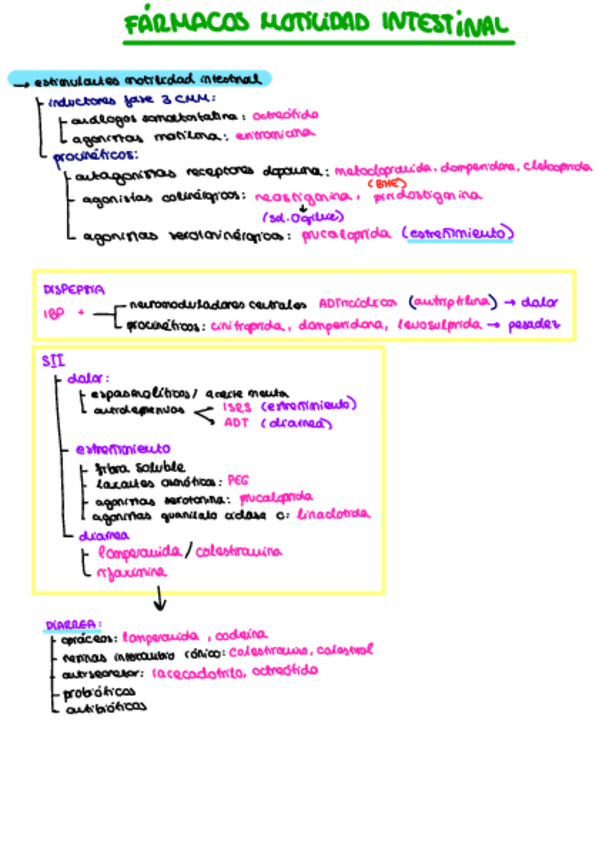 FÁRMACOS MOTILIDAD INTESTINAL
→ estimulantes motilidad intestinal
inductores fase 3 CMM:
análogos somatostatina: octreótido
agonistas motilina: eritromicina
procinéticos:
antagonistas receptores dopamina: metoclopramida, domperidona, cleboprida
(BHE)
agonistas colinérgicos: neostigmina, piridostigmina
(sd. Ogilvie)
agonistas serotoninérgicos: prucaloprida (estreñimiento)
DISPEPSIA
IBP +
neuromoduladores centrales ADTricíclicos (amitriptilina) → dolor
procinéticos: cinitaprida, domperidona, levosulpirida → pesadez
SII
dolor:
espasmolíticos / aceite menta
antidepresivos
ISRS (estreñimiento)
ADT (diarrea)
estreñimiento
fibra soluble
laxantes osmóticos: PEG
agonistas serotonina: prucaloprida
agonistas guanilato ciclasa C: linaclotida
diarrea
loperamida / colestiramina
rifaximina
DIARREA:
opiáceos: loperamida, codeína
resinas intercambio iónico: colestiramina, colestipol
antisecretor: racecadotrilo, octreótido
probióticos
antibióticos